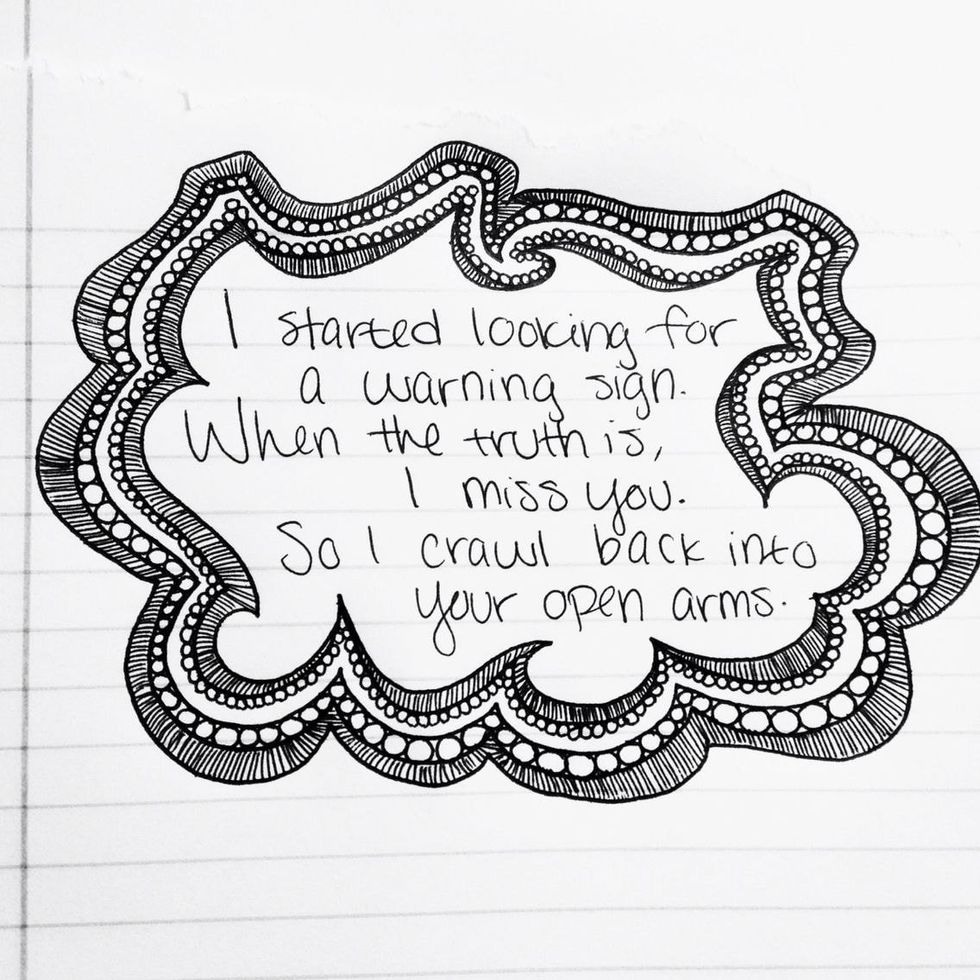 I started looking for
a warning sign.
When the truth is,
I miss you.
So I crawl back into
your open arms.